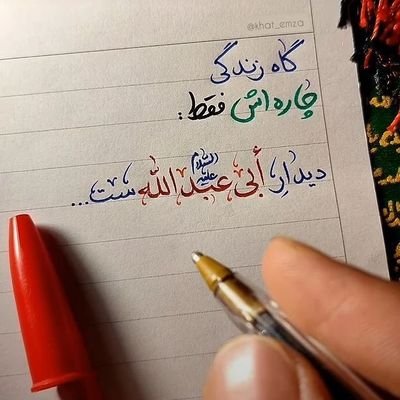 @khat_emza
گاه زندگی
چاره‌اش فقط:
دیدارِ أبی عبدالله علیه السلام ست...